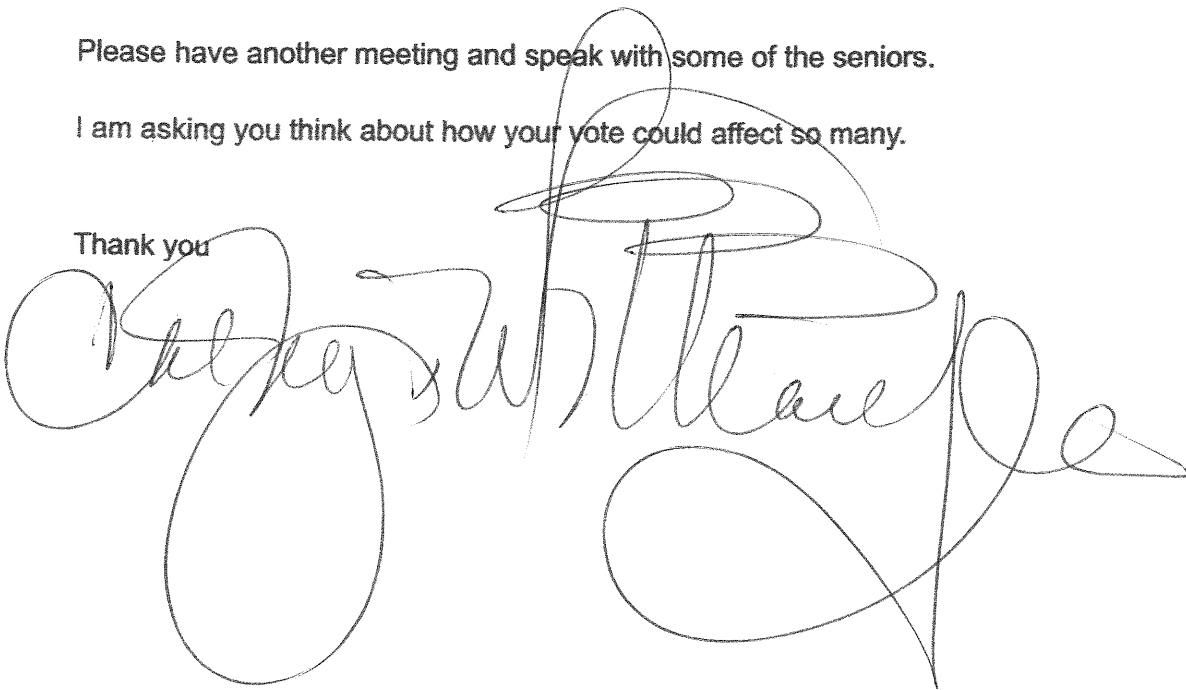 Please have another meeting and speak with some of the seniors.
I am asking you think about how your vote could affect so many.
Thank you